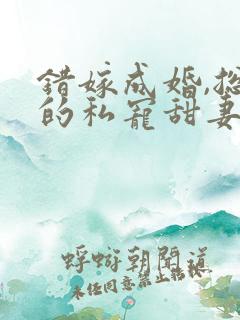 错嫁成婚,总
的私宠甜妻
蜉蝣朝闻道
未经同意禁止转载